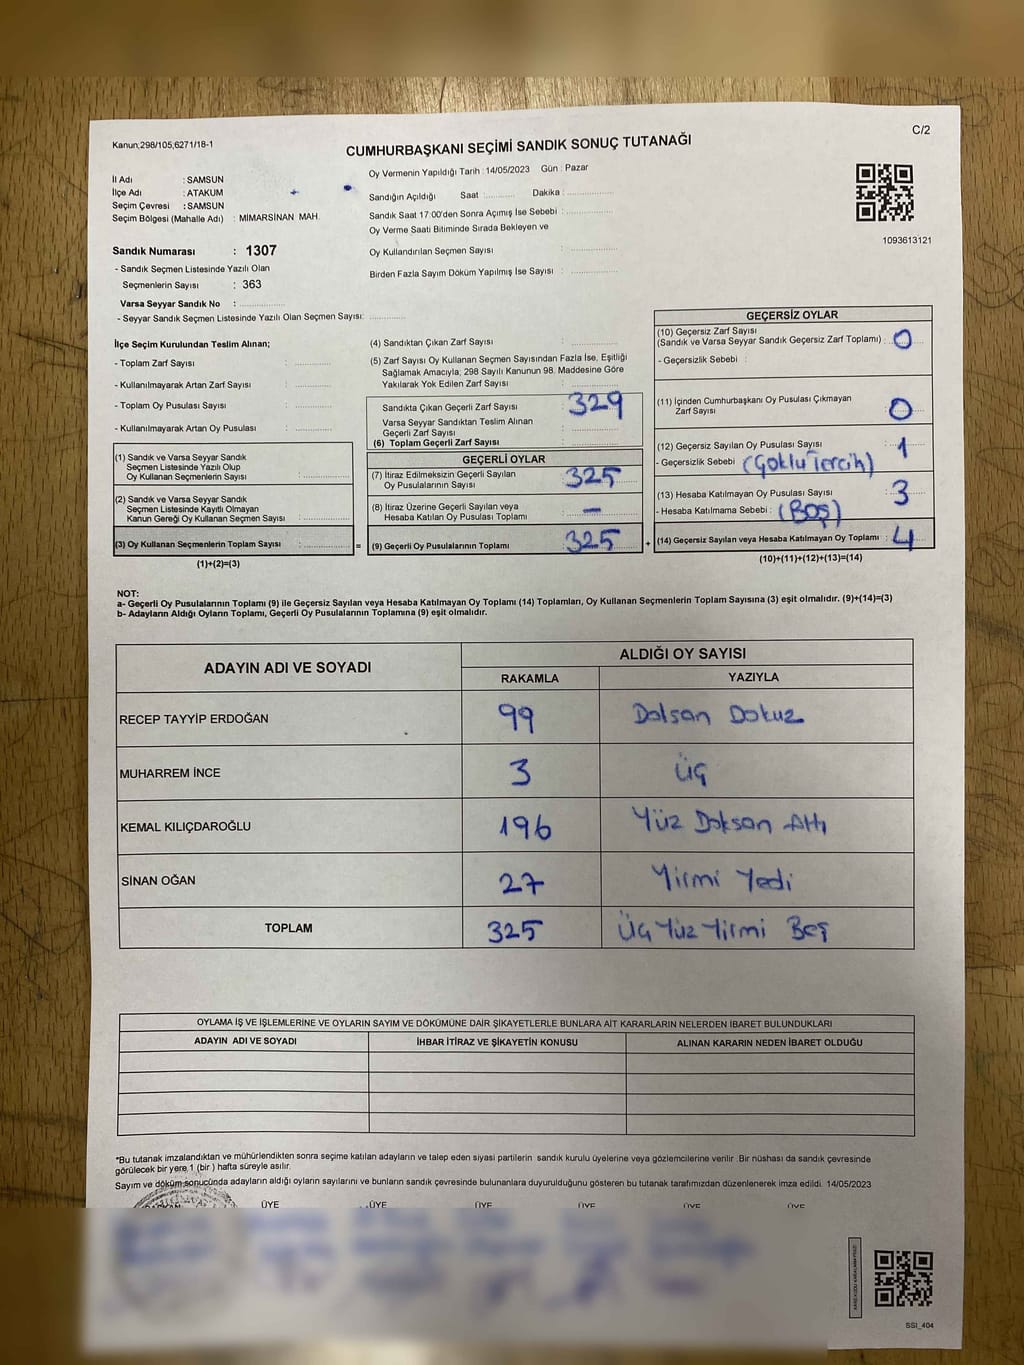 C/2
Kanun;298/105,6271/18-1
CUMHURBAŞKANI SEÇİMİ SANDIK SONUÇ TUTANAĞI
İl Adı : SAMSUN
İlçe Adı : ATAKUM
Seçim Çevresi : SAMSUN
Seçim Bölgesi (Mahalle Adı) : MİMARSİNAN MAH.
Oy Vermenin Yapıldığı Tarih : 14/05/2023 Gün : Pazar
Sandığın Açıldığı Saat ............ Dakika : ...............
Sandık Saat 17:00'den Sonra Açımış İse Sebebi : ...............
Oy Verme Saati Bitiminde Sırada Bekleyen ve
Oy Kullandırılan Seçmen Sayısı : ...............
Birden Fazla Sayım Döküm Yapılmış İse Sayısı : ...............
1093613121
Sandık Numarası : 1307
- Sandık Seçmen Listesinde Yazılı Olan
Seçmenlerin Sayısı : 363
Varsa Seyyar Sandık No : ...............
- Seyyar Sandık Seçmen Listesinde Yazılı Olan Seçmen Sayısı: ............
İlçe Seçim Kurulundan Teslim Alınan;
- Toplam Zarf Sayısı : ............
- Kullanılmayarak Artan Zarf Sayısı : ............
- Toplam Oy Pusulası Sayısı : ............
- Kullanılmayarak Artan Oy Pusulası : ............
(1) Sandık ve Varsa Seyyar Sandık
Seçmen Listesinde Yazılı Olup
Oy Kullanan Seçmenlerin Sayısı : ...............
(2) Sandık ve Varsa Seyyar Sandık
Seçmen Listesinde Kayıtlı Olmayan
Kanun Gereği Oy Kullanan Seçmen Sayısı : ...............
(3) Oy Kullanan Seçmenlerin Toplam Sayısı : ............... =
(1)+(2)=(3)
(4) Sandıktan Çıkan Zarf Sayısı : ...............
(5) Zarf Sayısı Oy Kullanan Seçmen Sayısından Fazla İse, Eşitliği
Sağlamak Amacıyla; 298 Sayılı Kanunun 98. Maddesine Göre
Yakılarak Yok Edilen Zarf Sayısı : ...............
Sandıkta Çıkan Geçerli Zarf Sayısı : 329
Varsa Seyyar Sandıktan Teslim Alınan
Geçerli Zarf Sayısı : ...............
(6) Toplam Geçerli Zarf Sayısı : ...............
GEÇERLİ OYLAR
(7) İtiraz Edilmeksizin Geçerli Sayılan
Oy Pusulalarının Sayısı : 325
(8) İtiraz Üzerine Geçerli Sayılan veya
Hesaba Katılan Oy Pusulası Toplamı : –
(9) Geçerli Oy Pusulalarının Toplamı : 325 +
GEÇERSİZ OYLAR
(10) Geçersiz Zarf Sayısı
(Sandık ve Varsa Seyyar Sandık Geçersiz Zarf Toplamı) : 0
- Geçersizlik Sebebi :
(11) İçinden Cumhurbaşkanı Oy Pusulası Çıkmayan
Zarf Sayısı : 0
(12) Geçersiz Sayılan Oy Pusulası Sayısı : 1
- Geçersizlik Sebebi : (Çoklu Tercih)
(13) Hesaba Katılmayan Oy Pusulası Sayısı : 3
- Hesaba Katılmama Sebebi : (Boş)
(14) Geçersiz Sayılan veya Hesaba Katılmayan Oy Toplamı : 4
(10)+(11)+(12)+(13)=(14)
NOT:
a- Geçerli Oy Pusulalarının Toplamı (9) ile Geçersiz Sayılan veya Hesaba Katılmayan Oy Toplamı (14) Toplamları, Oy Kullanan Seçmenlerin Toplam Sayısına (3) eşit olmalıdır. (9)+(14)=(3)
b- Adayların Aldığı Oyların Toplamı, Geçerli Oy Pusulalarının Toplamına (9) eşit olmalıdır.
ADAYIN ADI VE SOYADI
ALDIĞI OY SAYISI
RAKAMLA YAZIYLA
RECEP TAYYİP ERDOĞAN 99 Dolsan Dokuz
MUHARREM İNCE 3 Üç
KEMAL KILIÇDAROĞLU 196 Yüz Doksan Altı
SİNAN OĞAN 27 Yirmi Yedi
TOPLAM 325 Üç Yüz Yirmi Beş
OYLAMA İŞ VE İŞLEMLERİNE VE OYLARIN SAYIM VE DÖKÜMÜNE DAİR ŞİKAYETLERLE BUNLARA AİT KARARLARIN NELERDEN İBARET BULUNDUKLARI
ADAYIN ADI VE SOYADI İHBAR İTİRAZ VE ŞİKAYETİN KONUSU ALINAN KARARIN NEDEN İBARET OLDUĞU
*Bu tutanak imzalandıktan ve mühürlendikten sonra seçime katılan adayların ve talep eden siyasi partilerin sandık kurulu üyelerine veya gözlemcilerine verilir. Bir nüshası da sandık çevresinde
görülecek bir yere 1 (bir ) hafta süreyle asılır.
Sayım ve döküm sonucunda adayların aldığı oyların sayılarını ve bunların sandık çevresinde bulunanlara duyurulduğunu gösteren bu tutanak tarafımızdan düzenlenerek imza edildi. 14/05/2023
ÜYE ÜYE ÜYE ÜYE ÜYE ÜYE
SSI_404